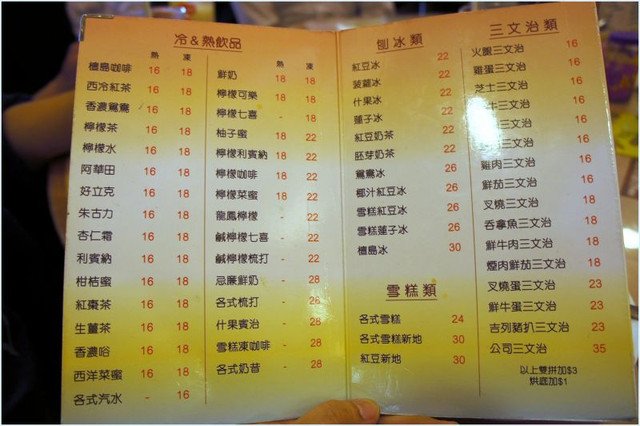 冷&熱飲品
熱 凍
檀島咖啡 16 18
西冷紅茶 16 18
香濃鴛鴦 16 18
檸檬茶 16 18
檸檬水 16 18
阿華田 16 18
好立克 16 18
朱古力 16 18
杏仁霜 16 18
利賓納 16 18
柑桔蜜 16 18
紅棗茶 16 18
生薑茶 16 18
香濃啥 16 18
西洋菜蜜 16 18
各式汽水 - 16
熱 凍
鮮奶 18 18
檸檬可樂 18 18
檸檬七喜 - 18
柚子蜜 18 22
檸檬利賓納 18 22
檸檬咖啡 18 22
檸檬菜蜜 18 22
龍鳳檸檬 - 22
鹹檸檬七喜 - 22
鹹檸檬梳打 - 22
忌廉鮮奶 - 28
各式梳打 - 26
什果賓治 - 28
雪糕凍咖啡 - 28
各式奶昔 - 28
刨冰類
紅豆冰 22
菠蘿冰 22
什果冰 22
蓮子冰 22
紅豆奶茶 22
胚芽奶茶 22
鴛鴦冰 26
椰汁紅豆冰 26
雪糕紅豆冰 26
雪糕蓮子冰 26
檀島冰 30
雪糕類
各式雪糕 24
各式雪糕新地 30
紅豆新地 30
三文治類
火腿三文治 16
雞蛋三文治 16
芝士三文治 16
牛三文治 16
三文治 16
三文治 16
雞肉三文治 16
鮮茄三文治 16
叉燒三文治 18
吞拿魚三文治 18
鮮牛肉三文治 18
煙肉鮮茄三文治 18
叉燒蛋三文治 23
鮮牛蛋三文治 23
吉列豬扒三文治 23
公司三文治 35
以上雙拼加$3
烘底加$1